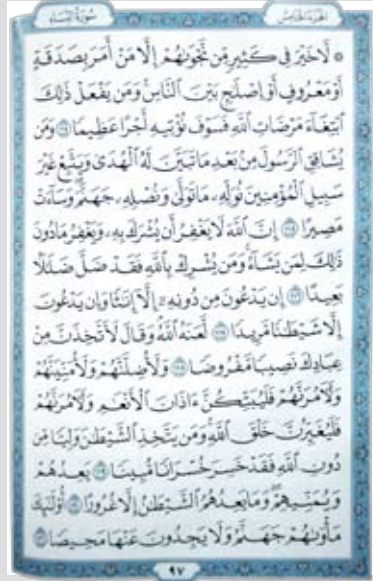 سورة النساء الجزء الخامس
۞ لَّا خَيْرَ فِي كَثِيرٍ مِّن نَّجْوَىٰهُمْ إِلَّا مَنْ أَمَرَ بِصَدَقَةٍ
أَوْ مَعْرُوفٍ أَوْ إِصْلَٰحٍۭ بَيْنَ ٱلنَّاسِ وَمَن يَفْعَلْ ذَٰلِكَ
ٱبْتِغَآءَ مَرْضَاتِ ٱللَّهِ فَسَوْفَ نُؤْتِيهِ أَجْرًا عَظِيمًا ١١٤ وَمَن
يُشَاقِقِ ٱلرَّسُولَ مِنۢ بَعْدِ مَا تَبَيَّنَ لَهُ ٱلْهُدَىٰ وَيَتَّبِعْ غَيْرَ
سَبِيلِ ٱلْمُؤْمِنِينَ نُوَلِّهِۦ مَا تَوَلَّىٰ وَنُصْلِهِۦ جَهَنَّمَ وَسَآءَتْ
مَصِيرًا ١١٥ إِنَّ ٱللَّهَ لَا يَغْفِرُ أَن يُشْرَكَ بِهِۦ وَيَغْفِرُ مَا دُونَ
ذَٰلِكَ لِمَن يَشَآءُ وَمَن يُشْرِكْ بِٱللَّهِ فَقَدْ ضَلَّ ضَلَٰلًۢا
بَعِيدًا ١١٦ إِن يَدْعُونَ مِن دُونِهِۦٓ إِلَّآ إِنَٰثًا وَإِن يَدْعُونَ
إِلَّا شَيْطَٰنًا مَّرِيدًا ١١٧ لَّعَنَهُ ٱللَّهُ وَقَالَ لَأَتَّخِذَنَّ مِنْ
عِبَادِكَ نَصِيبًا مَّفْرُوضًا ١١٨ وَلَأُضِلَّنَّهُمْ وَلَأُمَنِّيَنَّهُمْ
وَلَءَامُرَنَّهُمْ فَلَيُبَتِّكُنَّ ءَاذَانَ ٱلْأَنْعَٰمِ وَلَءَامُرَنَّهُمْ
فَلَيُغَيِّرُنَّ خَلْقَ ٱللَّهِ وَمَن يَتَّخِذِ ٱلشَّيْطَٰنَ وَلِيًّا مِّن
دُونِ ٱللَّهِ فَقَدْ خَسِرَ خُسْرَانًا مُّبِينًا ١١٩ يَعِدُهُمْ
وَيُمَنِّيهِمْ وَمَا يَعِدُهُمُ ٱلشَّيْطَٰنُ إِلَّا غُرُورًا ١٢٠ أُو۟لَٰٓئِكَ
مَأْوَىٰهُمْ جَهَنَّمُ وَلَا يَجِدُونَ عَنْهَا مَحِيصًا ١٢١
٩٧